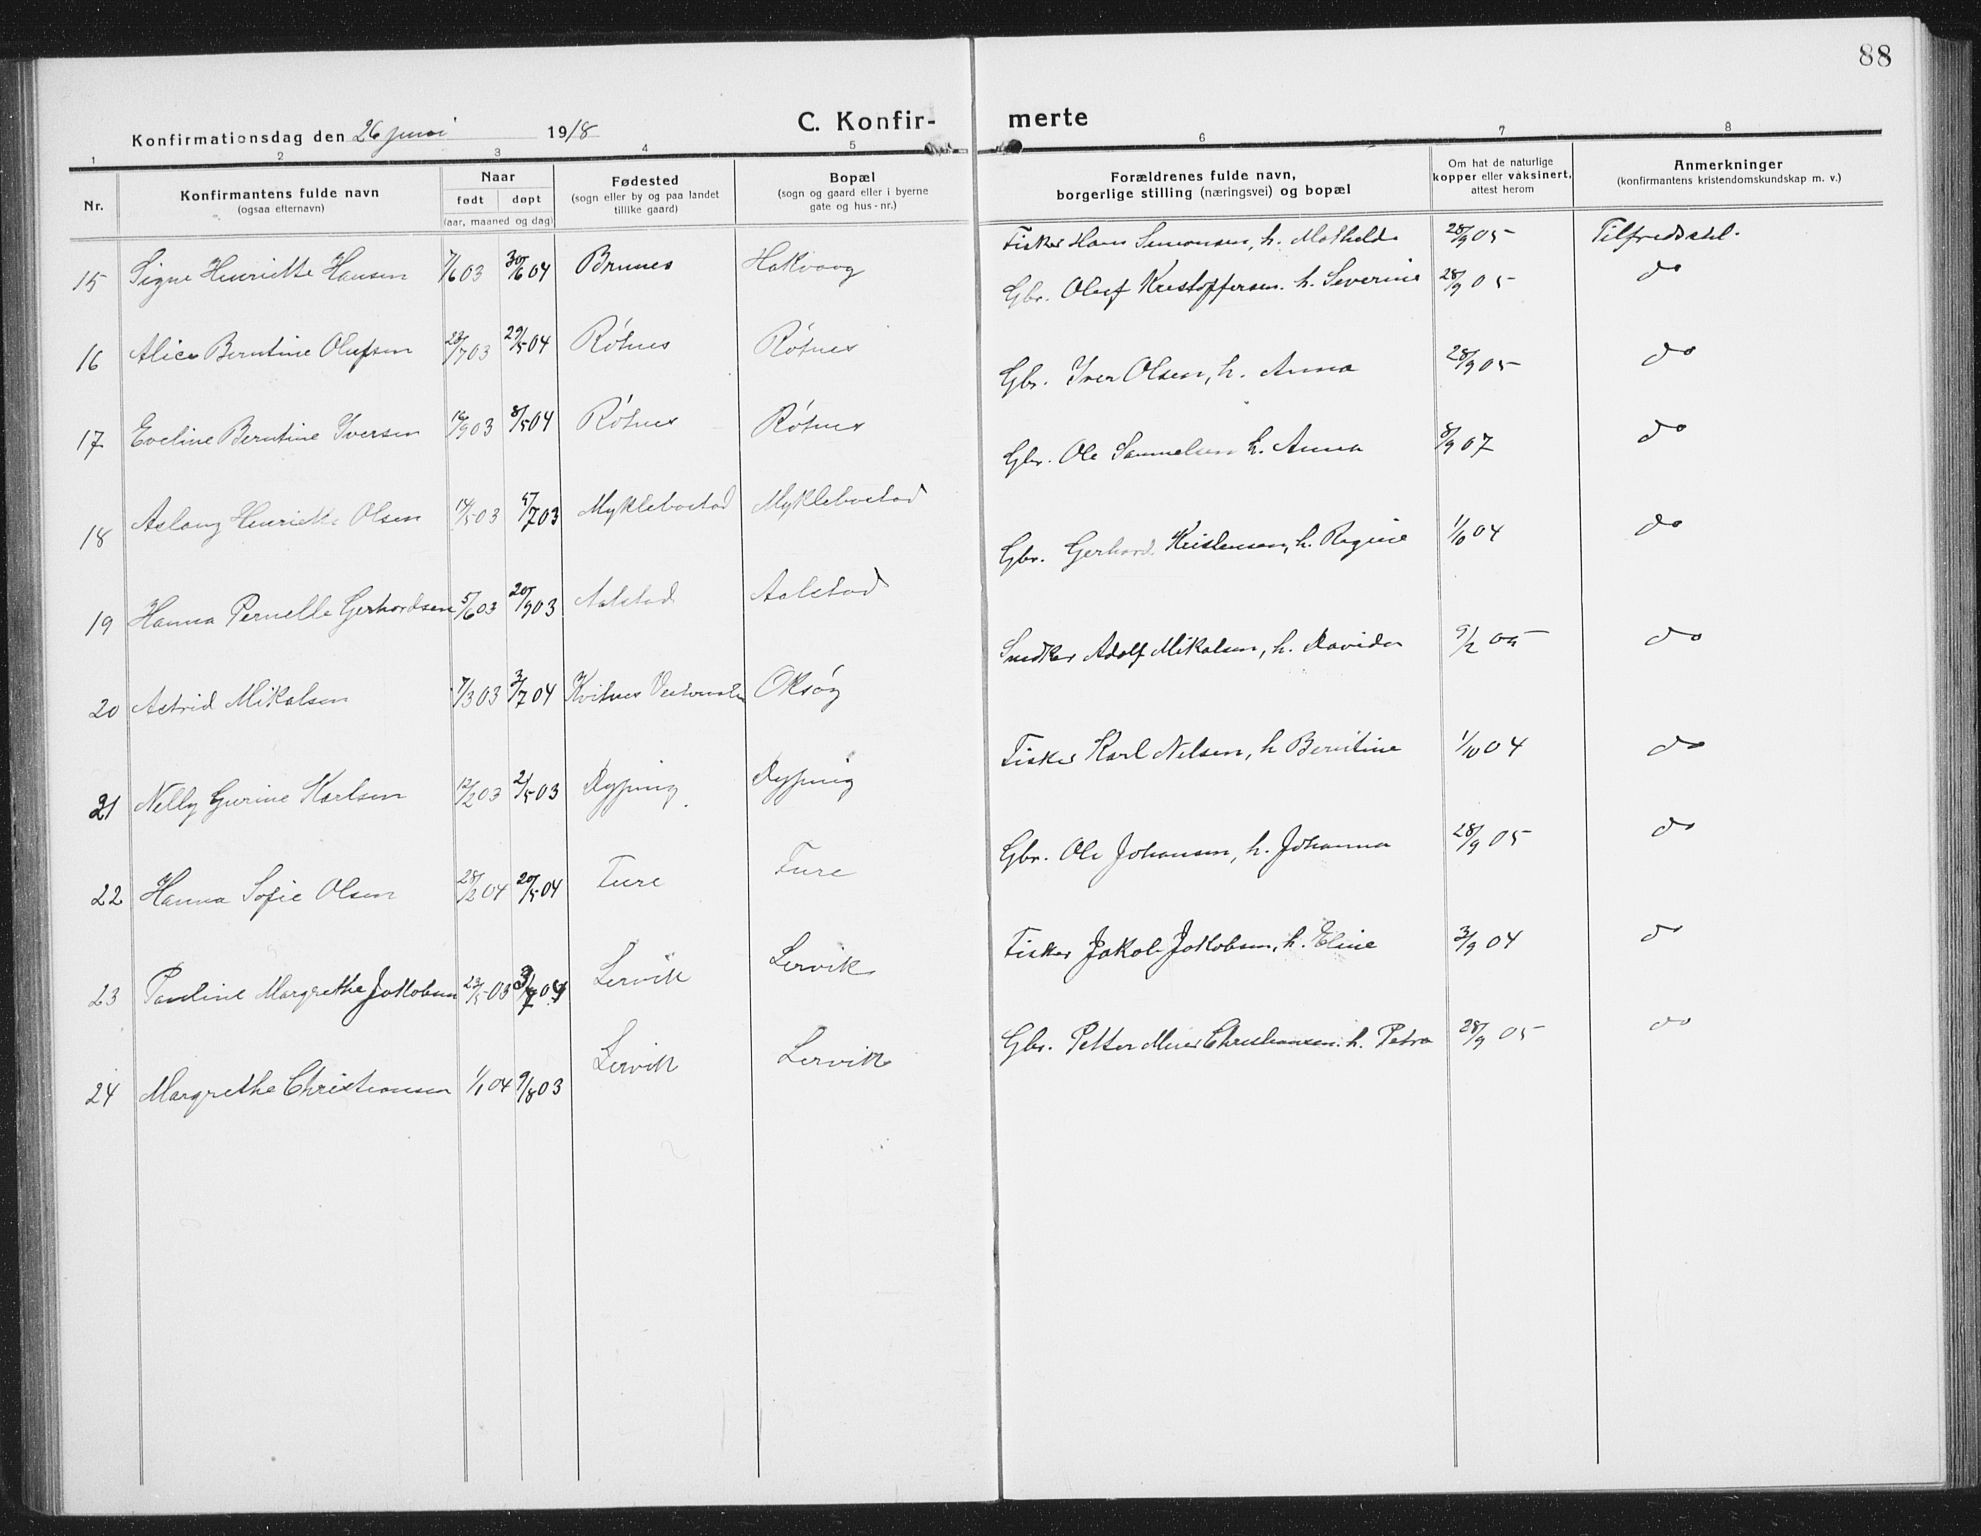 88
C. Konfirmerte
Konfirmationsdag den 26 juni 1918
1 2 3 4 5 6 7 8
Nr.
Konfirmantens fulde navn
(ogsaa efternavn)
Naar
født døpt
(aar, maaned og dag)
Fødested
(sogn eller by og paa landet
tillike gaard)
Bopæl
(sogn og gaard eller i byerne
gate og hus-nr.)
Forældrenes fulde navn,
borgerlige stilling (næringsvei) og bopæl
Om hat de naturlige
kopper eller vaksinert,
attest herom
Anmerkninger
(konfirmantens kristendomskundskap m. v.)
15 Signe Henriette Hansen 7/6 03 30/6 04 Brunes Hakvaag Fisker Hans Simonsen, h. Mathilde 28/9 05 Tilfredsstil.
16 Alice Berntine Olufsen 28/7 03 29/5 04 Røtnes Røtnes Gbr. Oluf Kristoffersen. h. Severine 28/9 05 do
17 Eveline Berntine Iversen 16/9 03 8/5 04 Røtnes Røtnes Gbr. Iver Olsen, h. Anna 28/9 05 do
18 Aslaug Henriette Olsen 14/5 03 5/7 03 Myklebostad Myklebostad Gbr. Ole Samuelsen h. Anna 8/9 07 do
19 Hanna Pernelle Gerhardsen 5/6 03 20/9 03 Aalstad Aalstad Gbr. Gerhard Kristensen, h. Regine 1/10 04 do
20 Astrid Mikalsen 7/3 03 3/7 04 Kvitnes Oksøy Snedker Adolf Mikalsen, h. Davida do
21 Nelly Gurine Karlsen 12/2 03 2/5 03 Fisker Karl Nilsen, h Berntine 1/10 04 do
22 Hanna Sofie Olsen 28/2 04 20/5 04 Fure Fure Gbr. Ole Johansen, h. Johanna 28/9 05 do
23 Pauline Margrethe Jakobsen 23/5 03 Lervik Lervik Fisker Jakob Jakobsen, h. Eline 3/9 04 do
24 Margrethe Christiansen 1/1 04 9/8 03 Lervik Lervik Gbr. Petter Meier Christiansen. h. Petra 28/9 05 do